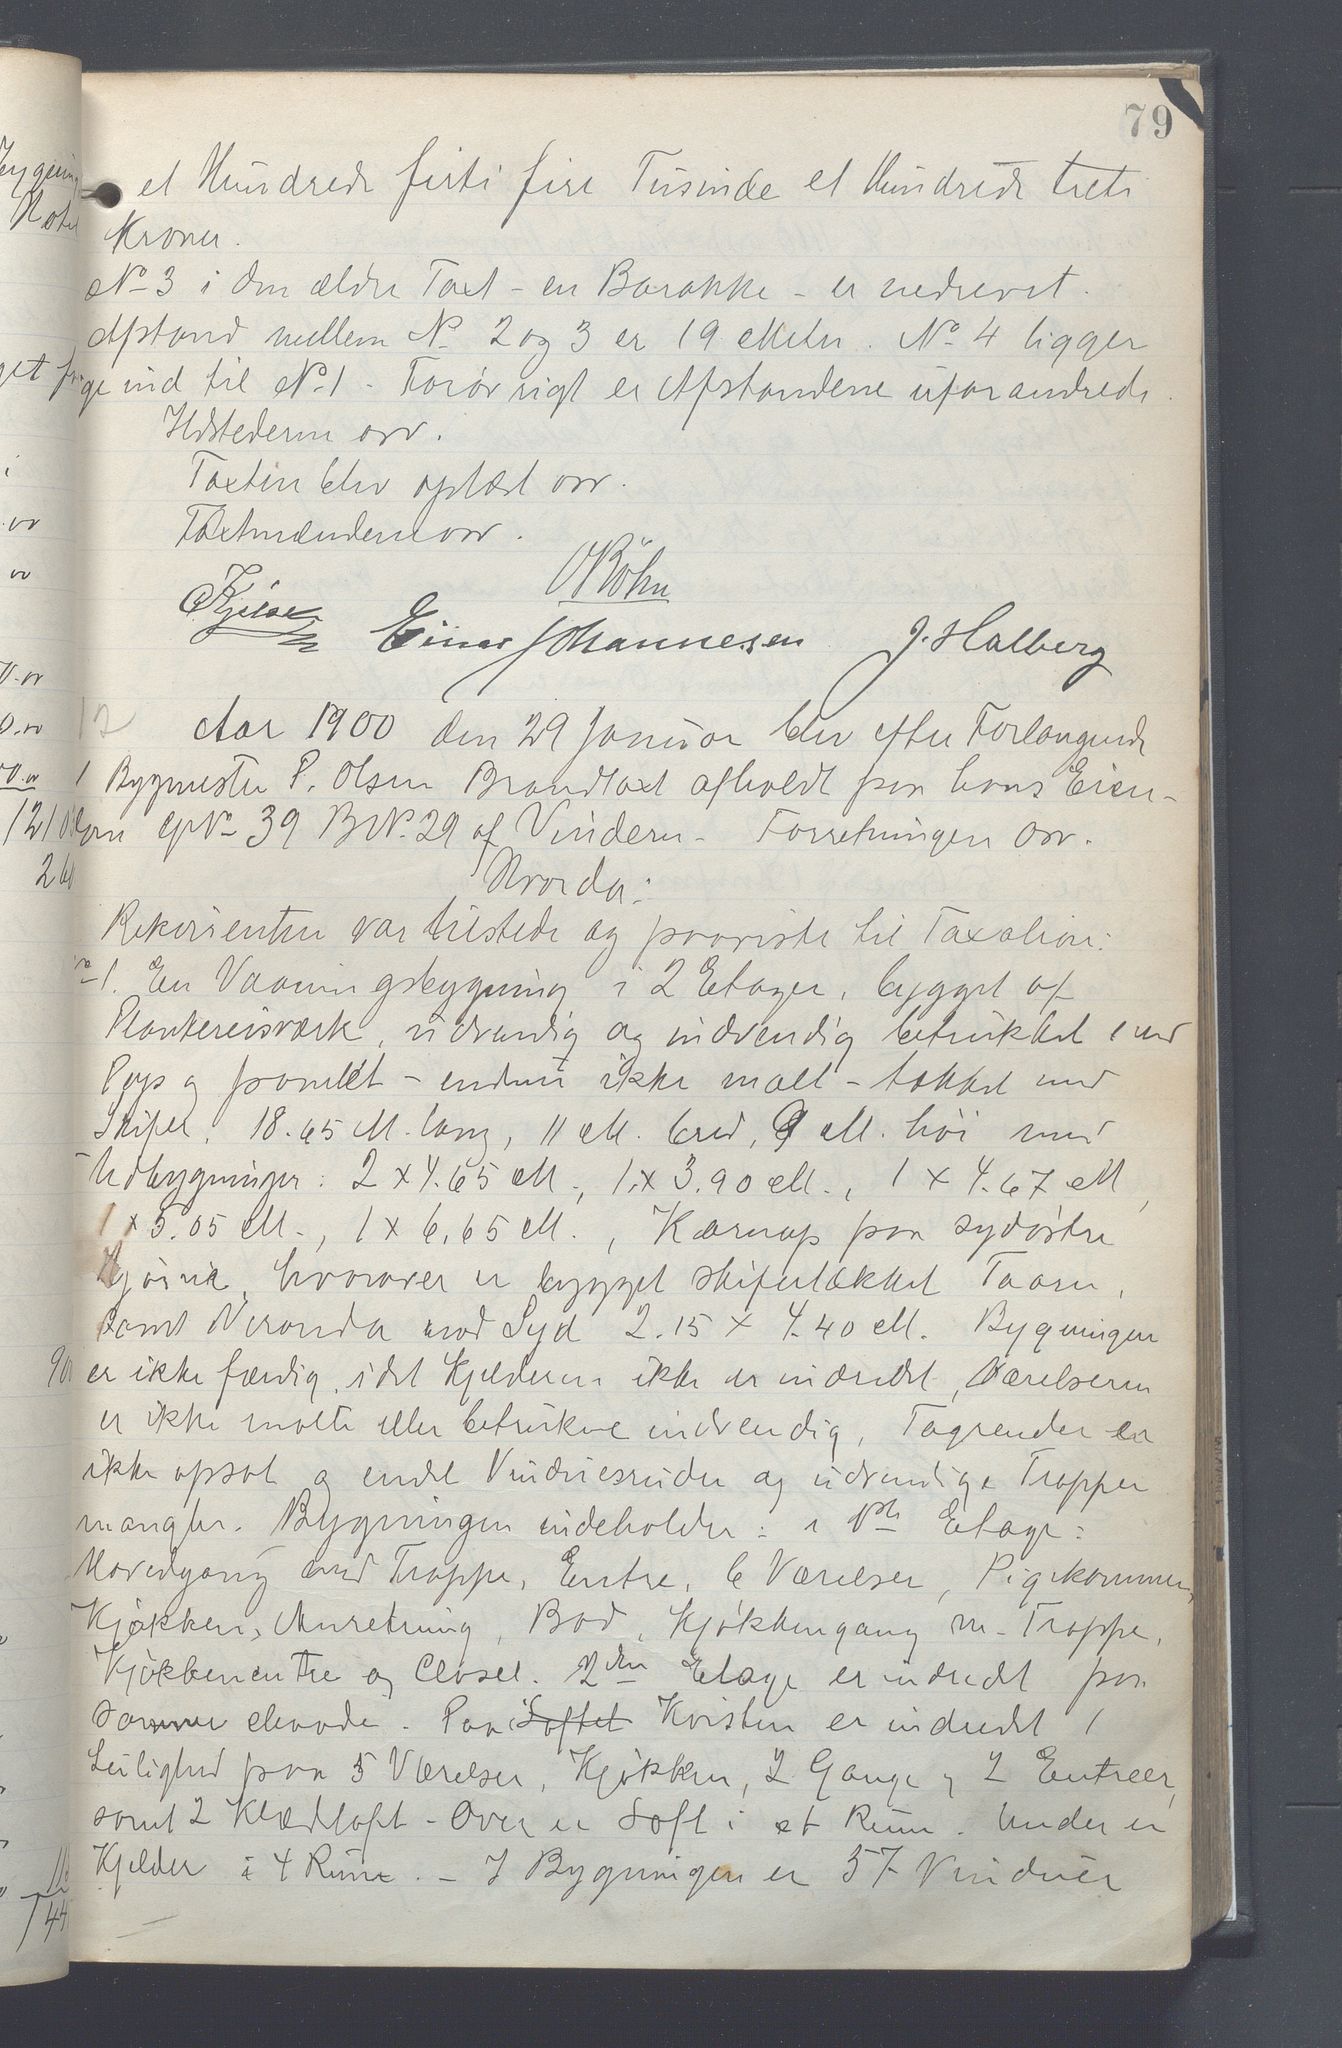 79
et Hundrede firti fire Tusinde et Hundrede treti
Kroner.
No 3 i den ældre Taxt - en Barakke - er nedrevet.
Afstand mellem No 2 og 3 er 19 Meter. No 4 ligger
ind til No 1 - Forøvrigt er Afstandene uforandrede.
Ildstederne osv.
Taxten blev oplæst osv.
Taxtmændene osv.
O Bøhn
Einar Johannesen J. Halberg
12 Aar 1900 den 29 Januar blev efter Forlangende
Bygmester P. Olsen Brandtaxt afholdt paa hans Eien-
dom GNo 39 BNo 29 af Vinderen - Forretningen osv.
Hvorda:
Rekvirenten var tilstede og paaviste til Taxation:
No 1. En Vaaningsbygning i 2 Etager, bygget af
Plankereisværk, udvendig og indvendig betrukket med
Pap og panelet - endnu ikke malt - tækket med
Skifer, 18.65 M. lang, 11 M. bred, 9 M. høi med
Udbygninger: 2 x 4.65 M., 1 x 3.90 M., 1 x 4.67 M,
1 x 5.05 M., 1 x 6.65 M., Karnap paa sydøstre
Hjørne, hvorover er bygget skifertækket Taarn,
samt Veranda mod Syd 2.15 x 4.40 M. Bygningen
er ikke færdig, idet Kjelderen ikke er indredet, Værelserne
er ikke malte eller betrukne indvendig, Tagrender er
ikke opsat og endel Vinduesruder og udvendige Trapper
mangler. Bygningen indeholder: i 1ste Etage:
Hovedgang med Trappe, Entre, 6 Værelser, Pigekammer,
Kjøkken, Anretning, Bod, Kjøkkengang m. Trappe,
Kjøkkenentre og Closet. 2den Etage er indredet paa
samme Maade. Paa Loftet Kvisten er indredet 1
Leilighed paa 5 Værelser, Kjøkken, 2 Gange og 2 Entreer,
samt 2 Klædloft - Over er Loft i et Rum. Under er
Kjelder i 4 Rum. - I Bygningen er 57 Vinduer